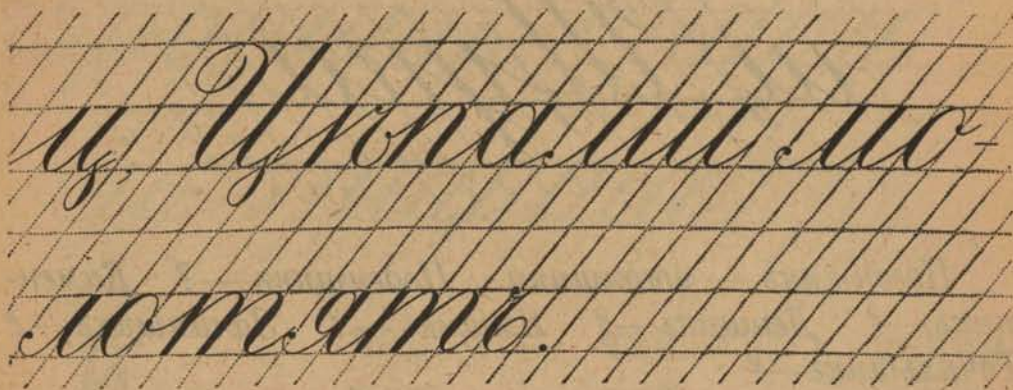 ц, Цѣпами мо-
лотятъ.